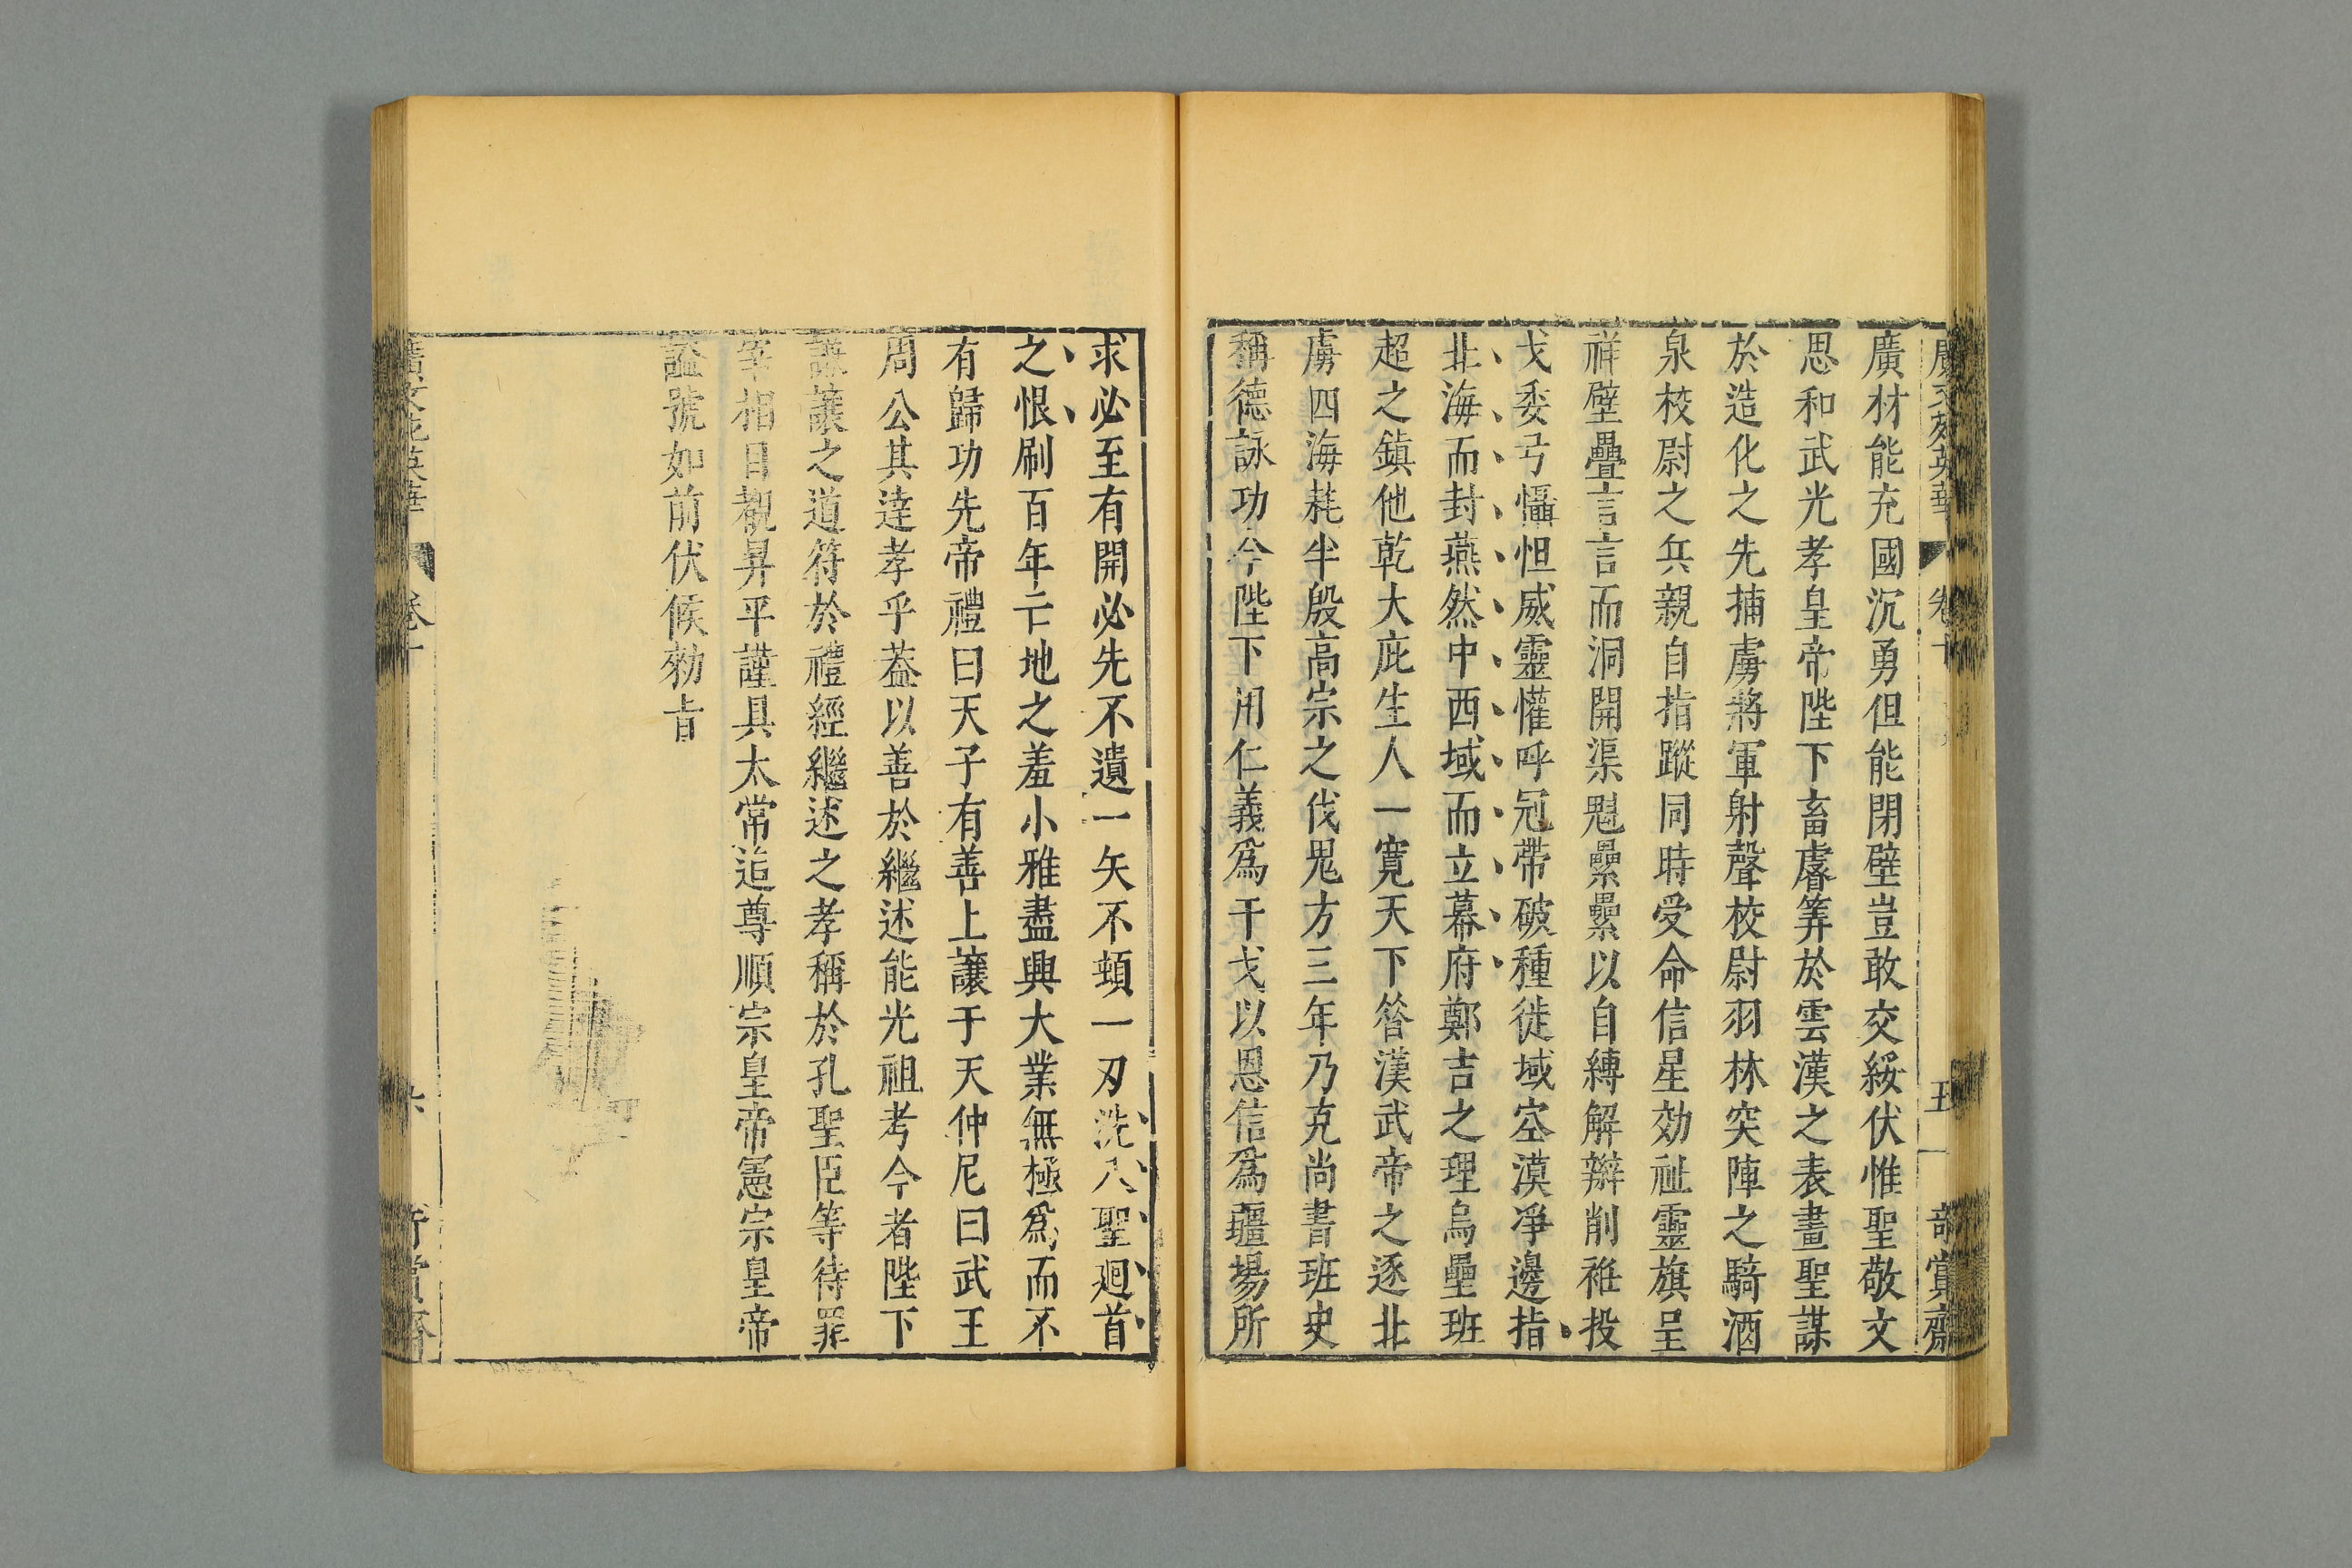 廣文苑英華 卷十 五 奇賞齋
廣材能充國沉勇但能閉壁豈敢交綏伏惟聖敬文
思和武光孝皇帝陛下畜睿筭於雲漢之表畫聖謀
於造化之先捕虜將軍射聲校尉羽林突陣之騎酒
泉校尉之兵親自指蹤同時受命信星効祉靈旗呈
祥壁疊言言而洞開渠魁纍纍以自縛解辮削袵投
戈委弓懾怛威靈懽呼冠帶破種徙域空漠淨邊指
北海而封燕然中西域而立幕府鄭吉之理烏壘班
超之鎮他乾大庇生人一寬天下昝漢武帝之逐北
虜四海耗半殷高宗之伐鬼方三年乃克尚書班史
稱德詠功今陛下用仁義爲干戈以恩信爲疆場所
求必至有開必先不遺一矢不頓一刃洗八聖廻首
之恨刷百年亡地之羞小雅盡興大業無極爲而不
有歸功先帝禮曰天子有善上讓于天仲尼曰武王
周公其達孝乎葢以善於繼述能光祖考今者陛下
謙讓之道符於禮經繼述之孝稱於孔聖臣等待罪
宰相目覩昇平謹具太常追尊順宗皇帝憲宗皇帝
謚號如前伏候勑旨
廣文苑英華 卷十